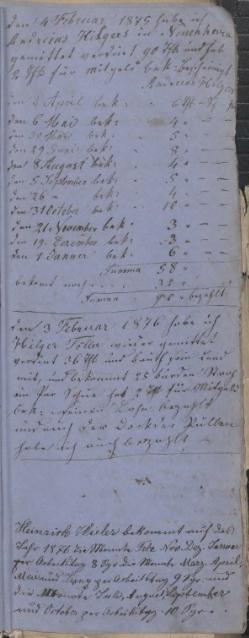 den 4 Februar 1875 habe ich
Andreas Hilgers in
gemittet verdient 90 Th und hat
2 Th für mitgeld bek. bescheinigt
Andreas Hilgers
den 2 April bek: 6 Th
den 6 Mai bek: 4 " — —
den 30 Mai bek: 5 " — —
den 29 Juni bek: 8 " — —
den 8 August bek: 4 " — —
den 5 September bek: 5 " — —
den 26 " bek: 4 " — —
den 31 Octobe bek: 10 " — —
den 21 November bek: 3 " — —
den 19 Dezember bek: 3 " — —
den 1 Janner bek: 6 " — —
Summa 58 " —
bekomt noch 32 " —
Suman 90 " bezahlt
den 3 Februar 1876 habe ich
Hilger wieder gemittet
verdint 36 Th und
mit, und bekommt 25 bürden Stroh
ein par Schue hat 2 Th für Mitgeld
bek: seinen Lohn bezahlt
und auch der Docktor
habe ich auch bezahlt
Heinrich Weiler bekommt auf das
Jahr 1876 die Monate Feb. Nov. Dez. Januar
per Arbeitstag 8 Sgr die Monate März April
Mai und Juny per Arbeitstag 9 Sgr und
die Monate Juli, August, September
und October per Arbeitstag 10 Sgr.